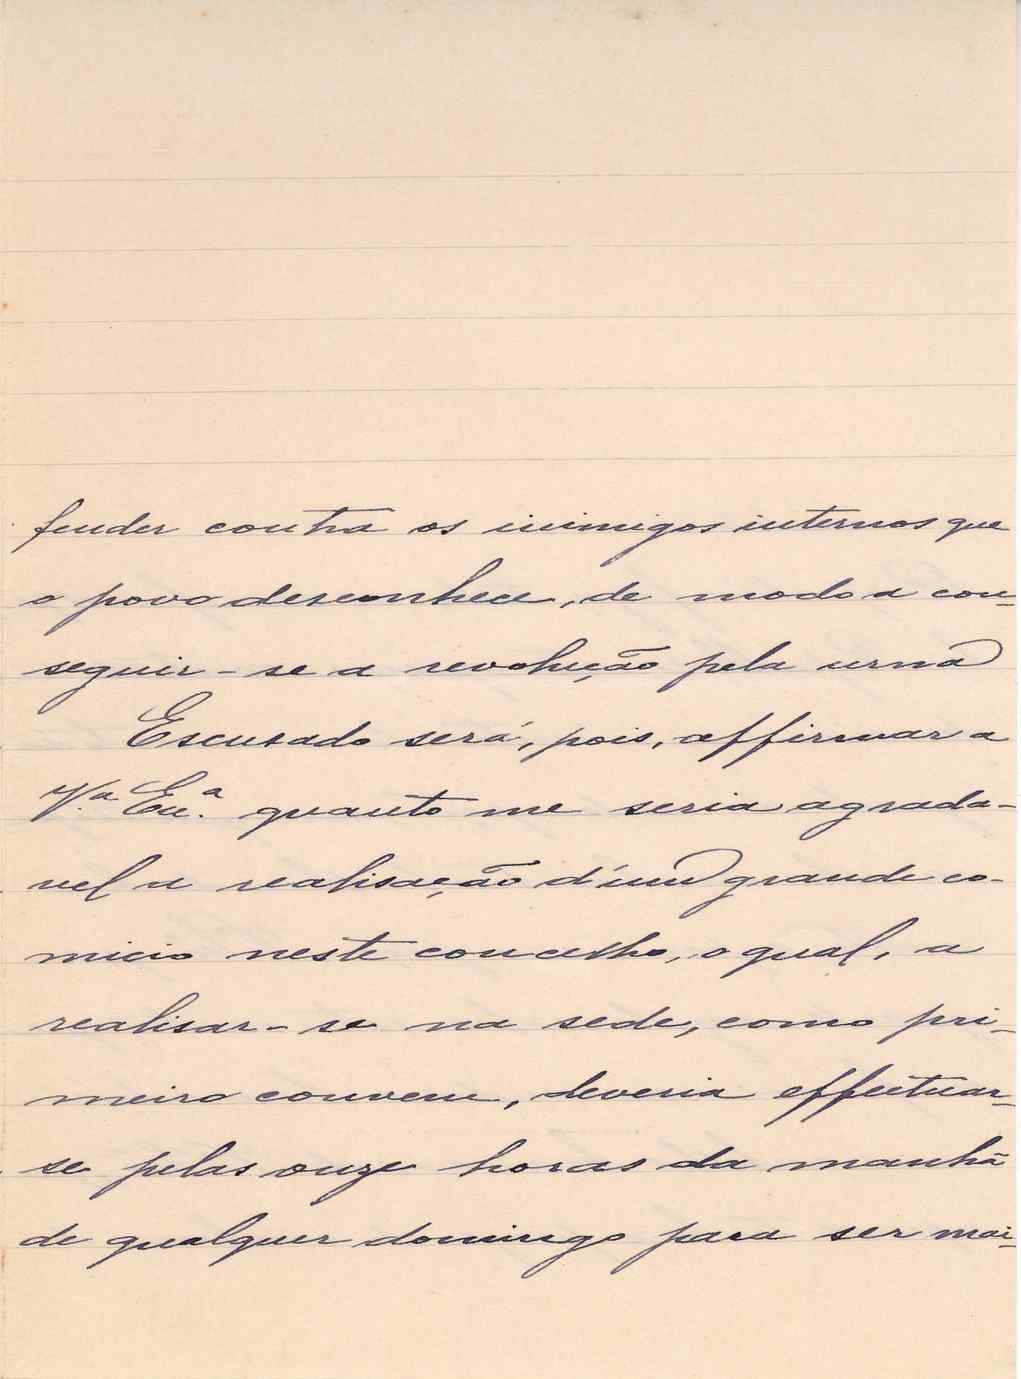 fender contra os inimigos internos que
o povo desconhece, de modo a con-
seguir-se a revolução pela urna
Escusado será, pois, affirmar a
V.ª Ex.ª quanto me seria agrada-
vel a realisação d'um grande co-
micio neste concelho, o qual, a
realisar-se na sede, como pri-
meiro convem, deveria effectuar-
se pelas onze horas da manhã
de qualquer domingo para ser mai-